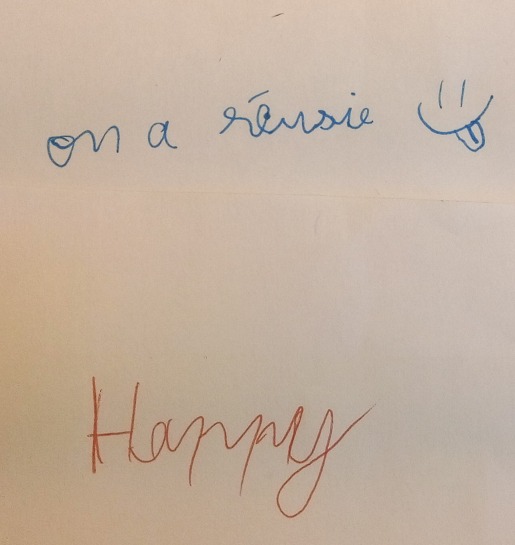 on a réusie
Happy